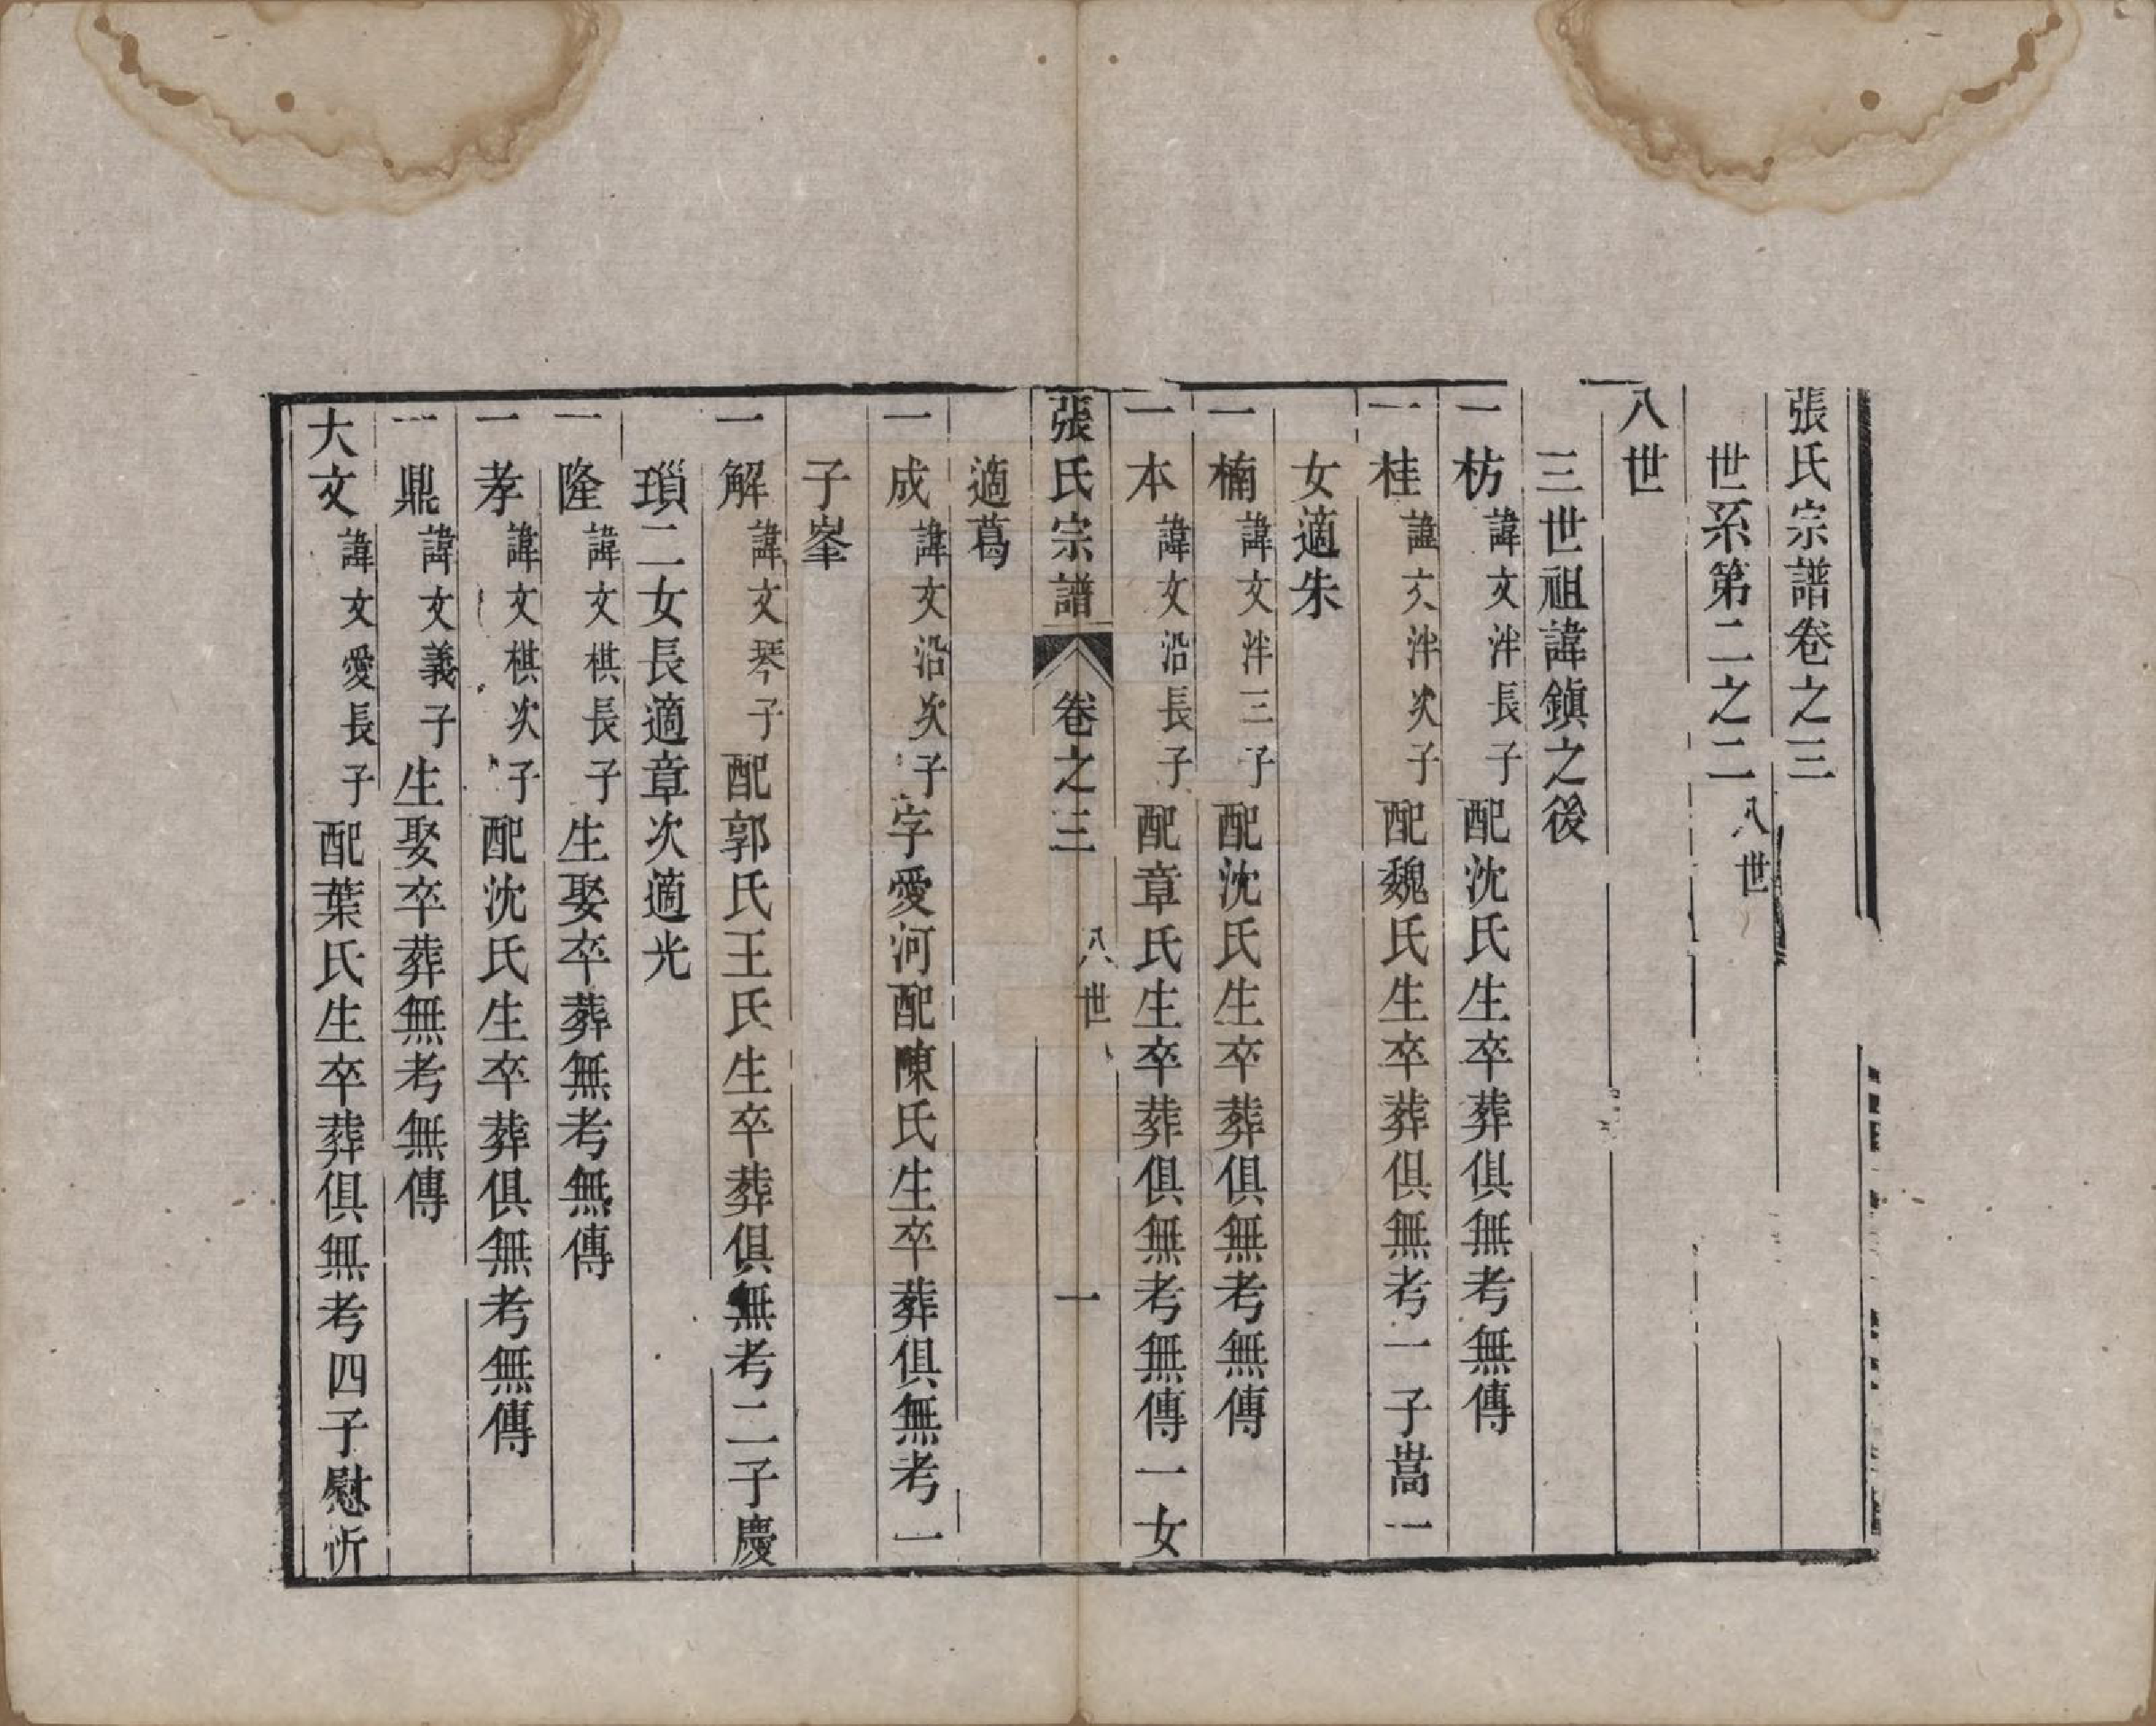 張氏宗譜卷之三
世系第二之二八世
八世
三世祖諱鎮之後
一枋諱文泮長子配沈氏生卒葬俱無考無傳
一桂諱文泮次子配魏氏生卒葬俱無考一子嵩一
女適朱
一楠諱文泮三子配沈氏生卒葬俱無考無傳
一本諱文沿長子配章氏生卒葬俱無考無傳一女
張氏宗譜 卷之三 八世 一
適葛
一成諱文沿次子字愛河配陳氏生卒葬俱無考一
子峯
一解諱文琴子配郭氏王氏生卒葬俱無考二子慶
瑣二女長適章次適光
一隆諱文棋長子生娶卒葬無考無傳
一孝諱文棋次子配沈氏生卒葬俱無考無傳
一鼎諱文義子生娶卒葬無考無傳
大文諱文愛長子配葉氏生卒葬俱無考四子慰忻